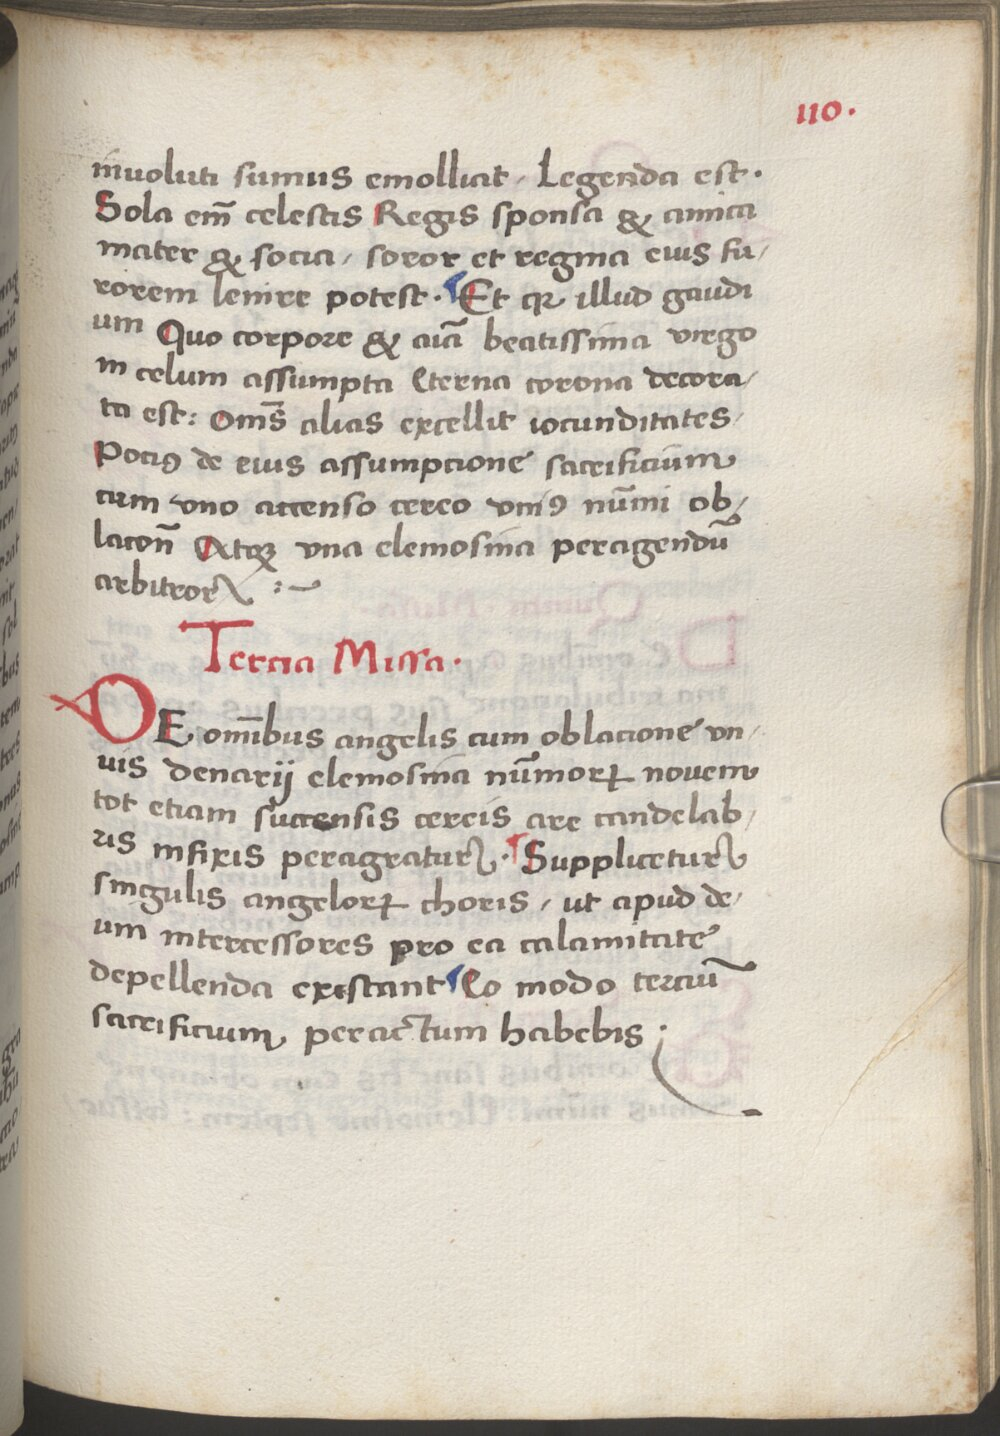 110.
inuoluti sumus emolliat, Legenda est.
Sola em̄ celestis Regis sponsa & amica
mater & socia, soror et regina eius fu,
rorem lenire potest. ¶Et qꝛ illud gaudi
um Quo corpore & aīa beatissima virgo
in celum assumpta Eterna corona decora,
ta est: Om̄s alias excellit iocunditates,
Pociꝰ de eius assumpcione sacrificium
cum vno accenso cereo vniꝰ nūmi ob,
lacōn Atqꝫ vna elemosina peragendū
arbitror :~
Tercia Missa.
DE om̄ibus angelis cum oblacione vn,
uis denarij elemosina nūmoꝝ novem
tot etiam succensis cereis are candelab,
ris infixis peragratur. ¶Supplicetur
singulis angeloꝝ choris, ut apud de,
um intercessores pro ea calamitate
depellenda existant ¶Eo modo terciū
sacrificium peractum habebis ;